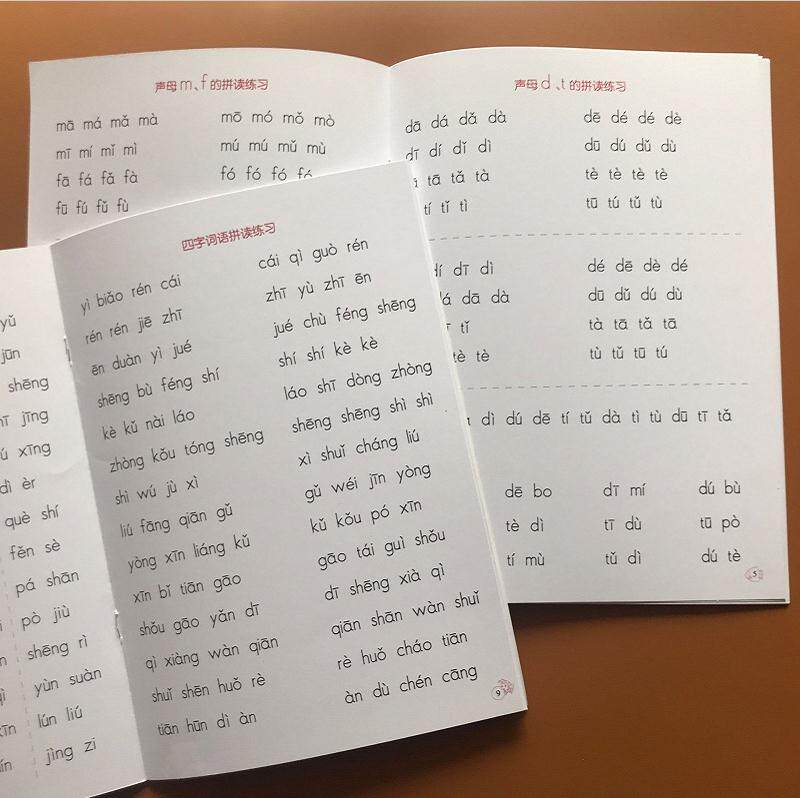 声母 m、f 的拼读练习
mā má mǎ mà mō mó mǒ mò
mī mí mǐ mì mú mú mǔ mù
fā fá fǎ fà fó fó fó
fū fú fǔ fù
声母 d、t 的拼读练习
dā dá dǎ dà dē dé dé dè
dī dí dǐ dì dū dú dǔ dù
tā tǎ tà tè tè tè tè
tí tǐ tì tū tú tǔ tù
dí dī dì dé dē dè dé
dá dā dà dū dǔ dú dù
tǐ tà tā tǎ tā
tè tè tù tǔ tū tú
dì dú dē tí tǔ dà tì tù dū tī tǎ
dē bo dī mí dú bù
tè dì tī dù tū pò
tí mù tǔ dì dú tè
5
yǔ
jūn
shēng
jīng
xīng
dì èr
què shí
fěn sè
pá shān
pò jiù
shēng rì
yùn suàn
lún liú
jìng zi
四字词语拼读练习
yì biǎo rén cái cái qì guò rén
rén rén jiē zhī zhī yù zhī ēn
ēn duàn yì jué jué chù féng shēng
shēng bù féng shí shí shí kè kè
kè kǔ nài láo láo shī dòng zhòng
zhòng kǒu tóng shēng shēng shēng shì shì
shì wú jù xì xì shuǐ cháng liú
liú fāng qiān gǔ gǔ wéi jīn yòng
yòng xīn liáng kǔ kǔ kǒu pó xīn
xīn bǐ tiān gāo gāo tái guì shǒu
shǒu gāo yǎn dī dī shēng xià qì
qì xiàng wàn qiān qiān shān wàn shuǐ
shuǐ shēn huǒ rè rè huǒ cháo tiān
tiān hūn dì àn àn dù chén cāng
9